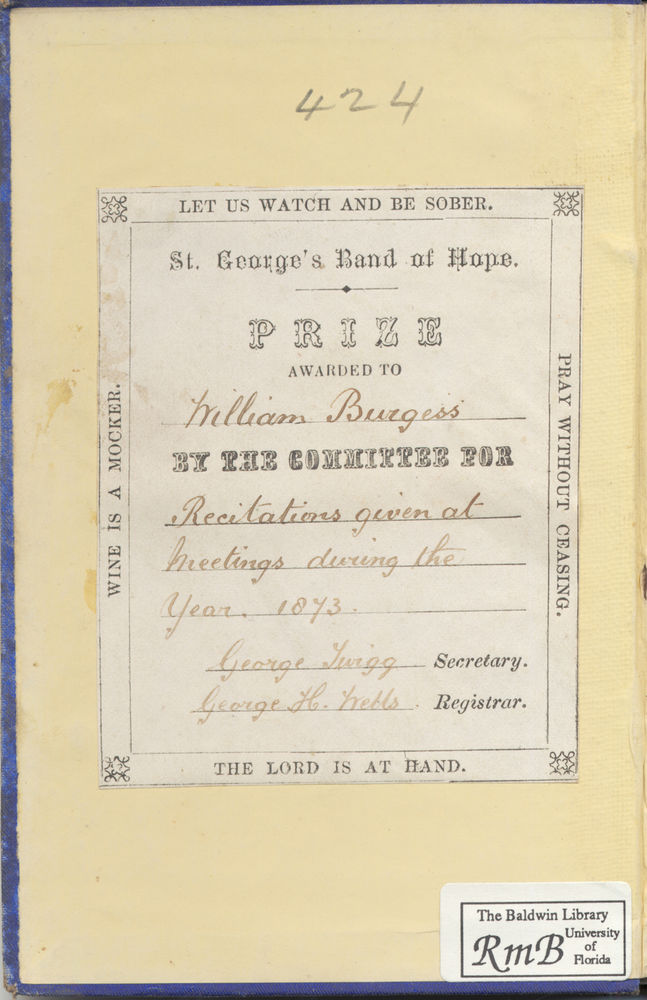 424
LET US WATCH AND BE SOBER.
St. George's Band of Hope.
PRIZE
AWARDED TO
William Burgess
BY THE COMMITTEE FOR
Recitations given at
Meetings during the
Year. 1873.
George Twigg Secretary.
George H. Webbs. Registrar.
THE LORD IS AT HAND.
WINE IS A MOCKER.
PRAY WITHOUT CEASING.
The Baldwin Library
RmB University
of
Florida